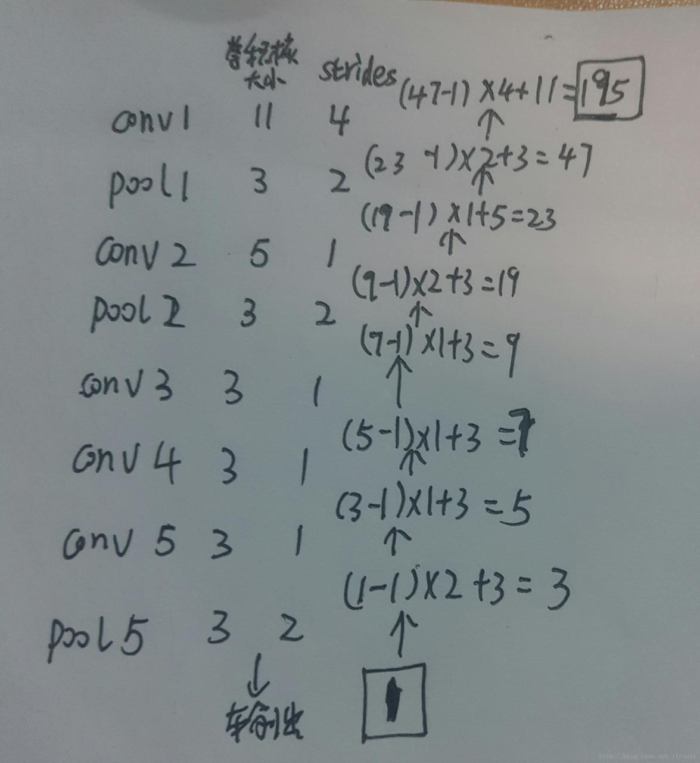 卷积核大小 strides
(47-1)×4+11=195
conv1 11 4
(23-1)×2+3=47
pool1 3 2
(19-1)×1+5=23
conv2 5 1
(9-1)×2+3=19
pool2 3 2
(7-1)×1+3=9
conv3 3 1
(5-1)×1+3=7
conv4 3 1
(3-1)×1+3=5
conv5 3 1
(1-1)×2+3=3
pool5 3 2
1
输出